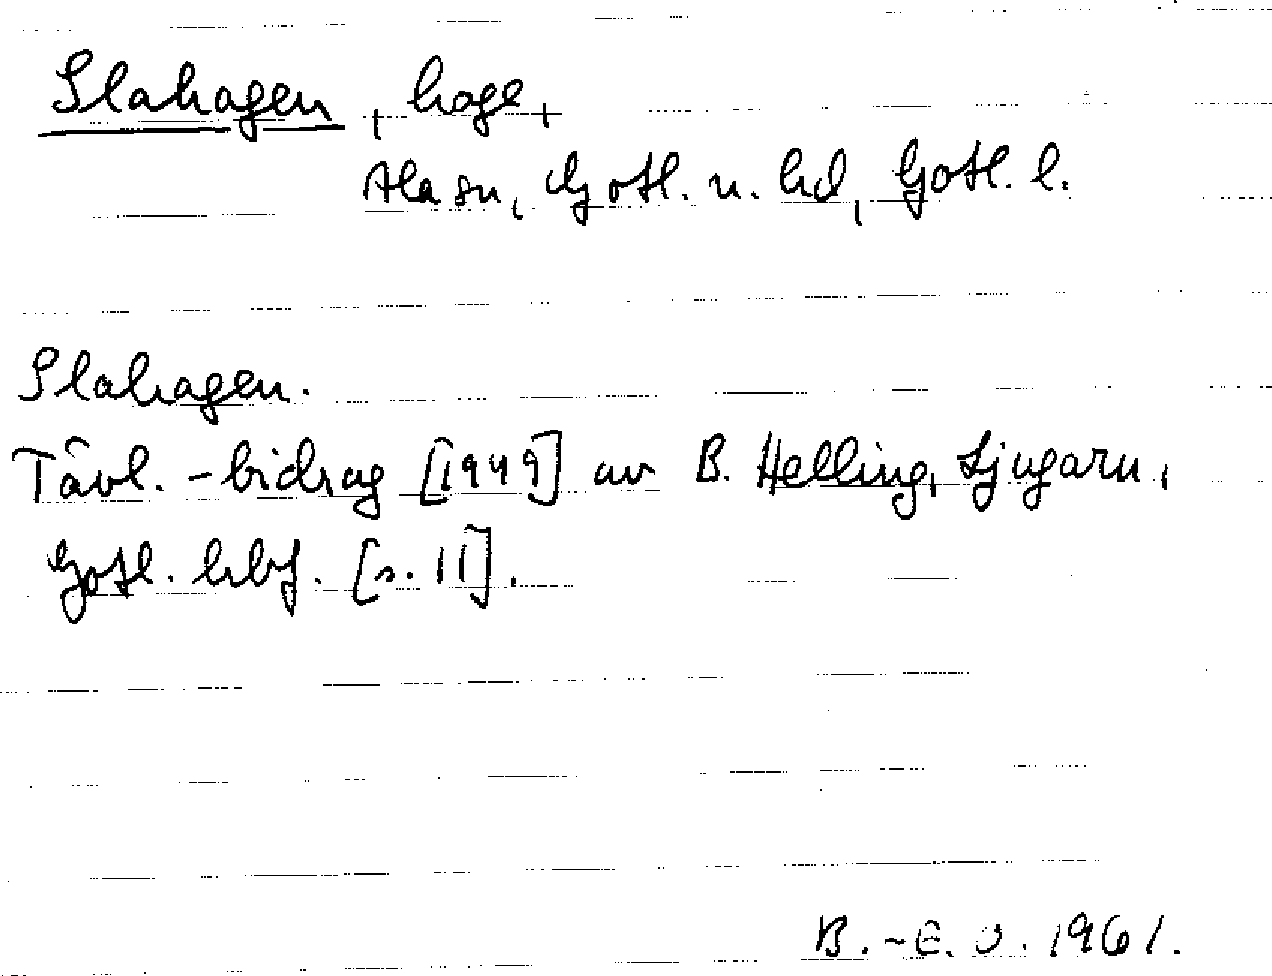 Slahagen, hage,
Ala sn, Gotl. n. hd, Gotl. l.
Slahagen.
Tävl.-bidrag [1949] av B. Helling, Ljugarn,
Gotl. hbf. [s. 11].
B.-E. O. 1961.